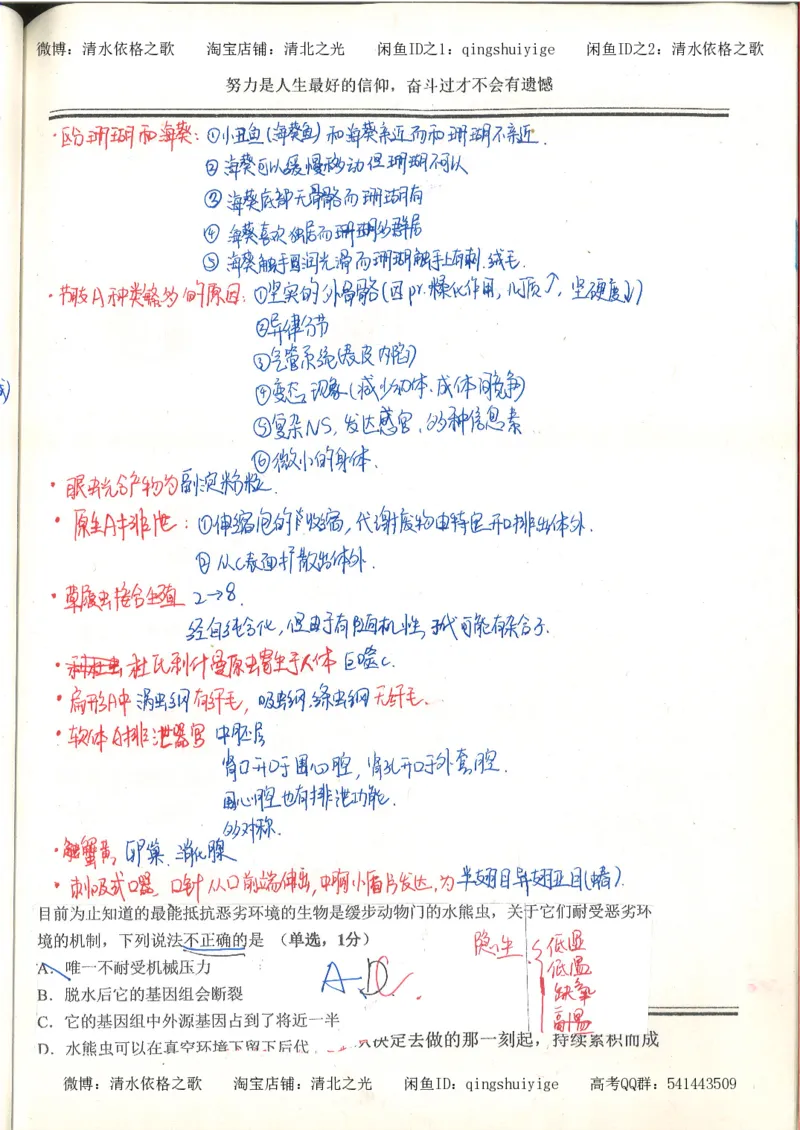 微博：清水依格之歌 淘宝店铺：清北之光 闲鱼ID之1：qingshuiyige 闲鱼ID之2：清水依格之歌
努力是人生最好的信仰，奋斗过才不会有遗憾
·区分珊瑚和海葵：①小丑鱼(海葵鱼)和海葵亲近而和珊瑚不亲近.
②海葵可以缓慢移动但珊瑚不可以
③海葵底部无骨骼而珊瑚有
④海葵喜欢独居而珊瑚多群居
⑤海葵触手圆润光滑而珊瑚触手上有刺.绒毛.
·节肢A种类繁多的原因：①坚实的外骨骼(因pr.鞣化作用,几丁质↑,坚硬度↓)
②异律分节
③气管系统(表皮内陷)
④变态现象(减少幼体.成体间竞争)
⑤复杂NS,发达感官.多种信息素
⑥微小的身体.
·眼虫光合产物为副淀粉粒.
·原生A排泄：①伸缩泡的收缩,代谢废物由特定开口排出体外.
②从C表面扩散出体外.
·草履虫接合生殖 2→8.
经自纯合化,但由于有随机性,子代可能有杂合子.
·杜氏利什曼原虫寄生于人体巨噬C.
·扁形A中涡虫纲有纤毛,吸虫纲.绦虫纲无纤毛.
·软体A排泄器官 中胚层
肾口开口于围心腔,肾孔开口于外套腔.
围心腔也有排泄功能.
多对称.
蟹黄 卵巢.消化腺
·刺吸式口器 口针从口前端伸出,中有小盾片发达,为半翅目异翅亚目(蝽).
目前为止知道的最能抵抗恶劣环境的生物是缓步动物门的水熊虫，关于它们耐受恶劣环
境的机制，下列说法不正确的是 （单选，1分）
隐生 低湿
A. 唯一不耐受机械压力
低温
B. 脱水后它的基因组会断裂
缺氧
C. 它的基因组中外源基因占到了将近一半
高温
D. 水熊虫可以在真空环境下留下后代
决定去做的那一刻起，持续累积而成
微博：清水依格之歌 淘宝店铺：清北之光 闲鱼ID：qingshuiyige 高考QQ群：541443509